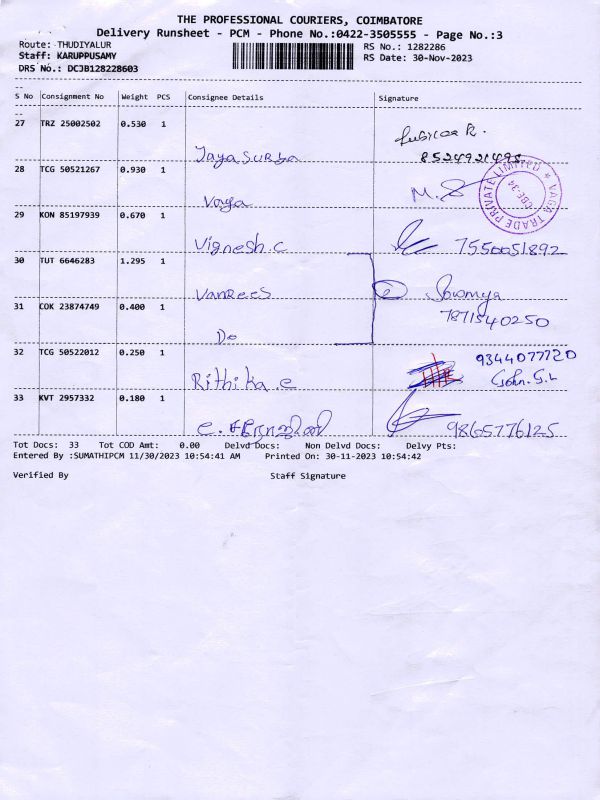 THE PROFESSIONAL COURIERS, COIMBATORE
Delivery Runsheet - PCM - Phone No.:0422-3505555 - Page No.:3
Route: THUDIYALUR
RS No.: 1282286
Staff: KARUPPUSAMY
RS Date: 30-Nov-2023
DRS No.: DCJB128228603
S No Consignment No Weight PCS Consignee Details Signature
27 TRZ 25002502 0.530 1
8524921498
28 TCG 50521267 0.930 1
M.
VAGA TRADE PRIVATE LIMITED ★ CBE-34
29 KON 85197939 0.670 1
Vignesh.C 7550051892
30 TUT 6646283 1.295 1
VanRees Sowmya
31 COK 23874749 0.400 1
7871540250
Do
32 TCG 50522012 0.250 1
9344077720
Rithika.e John.S.L
33 KVT 2957332 0.180 1
9865776125
Tot Docs: 33 Tot COD Amt: 0.00 Delvd Docs: Non Delvd Docs: Delvy Pts:
Entered By :SUMATHIPCM 11/30/2023 10:54:41 AM Printed On: 30-11-2023 10:54:42
Verified By Staff Signature